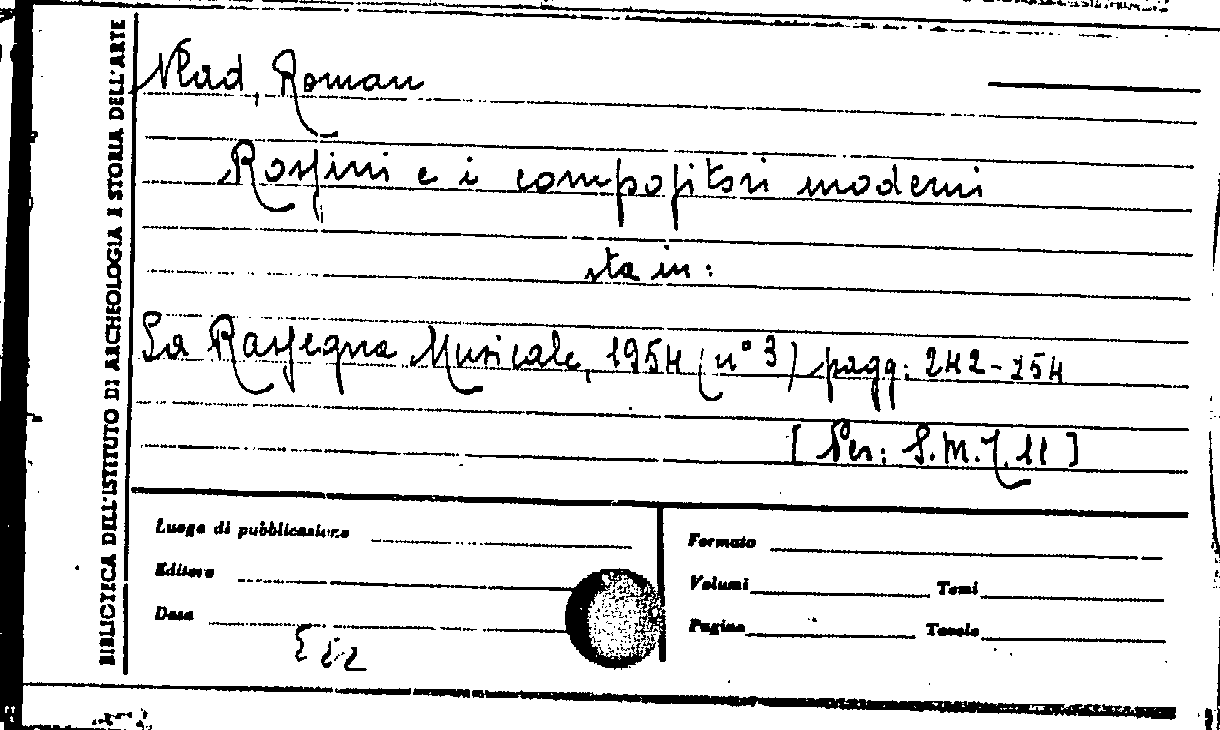 BIBLIOTECA DELL'ISTITUTO DI ARCHEOLOGIA E STORIA DELL'ARTE
Vlad, Roman
Rossini e i compositori moderni
sta in:
La Rassegna Musicale, 1954 (n° 3) pagg: 242-254
[ Per: S.M.J. 11 ]
Luogo di pubblicazione
Editore
Data
Formato
Volumi Tomi
Pagine Tavole